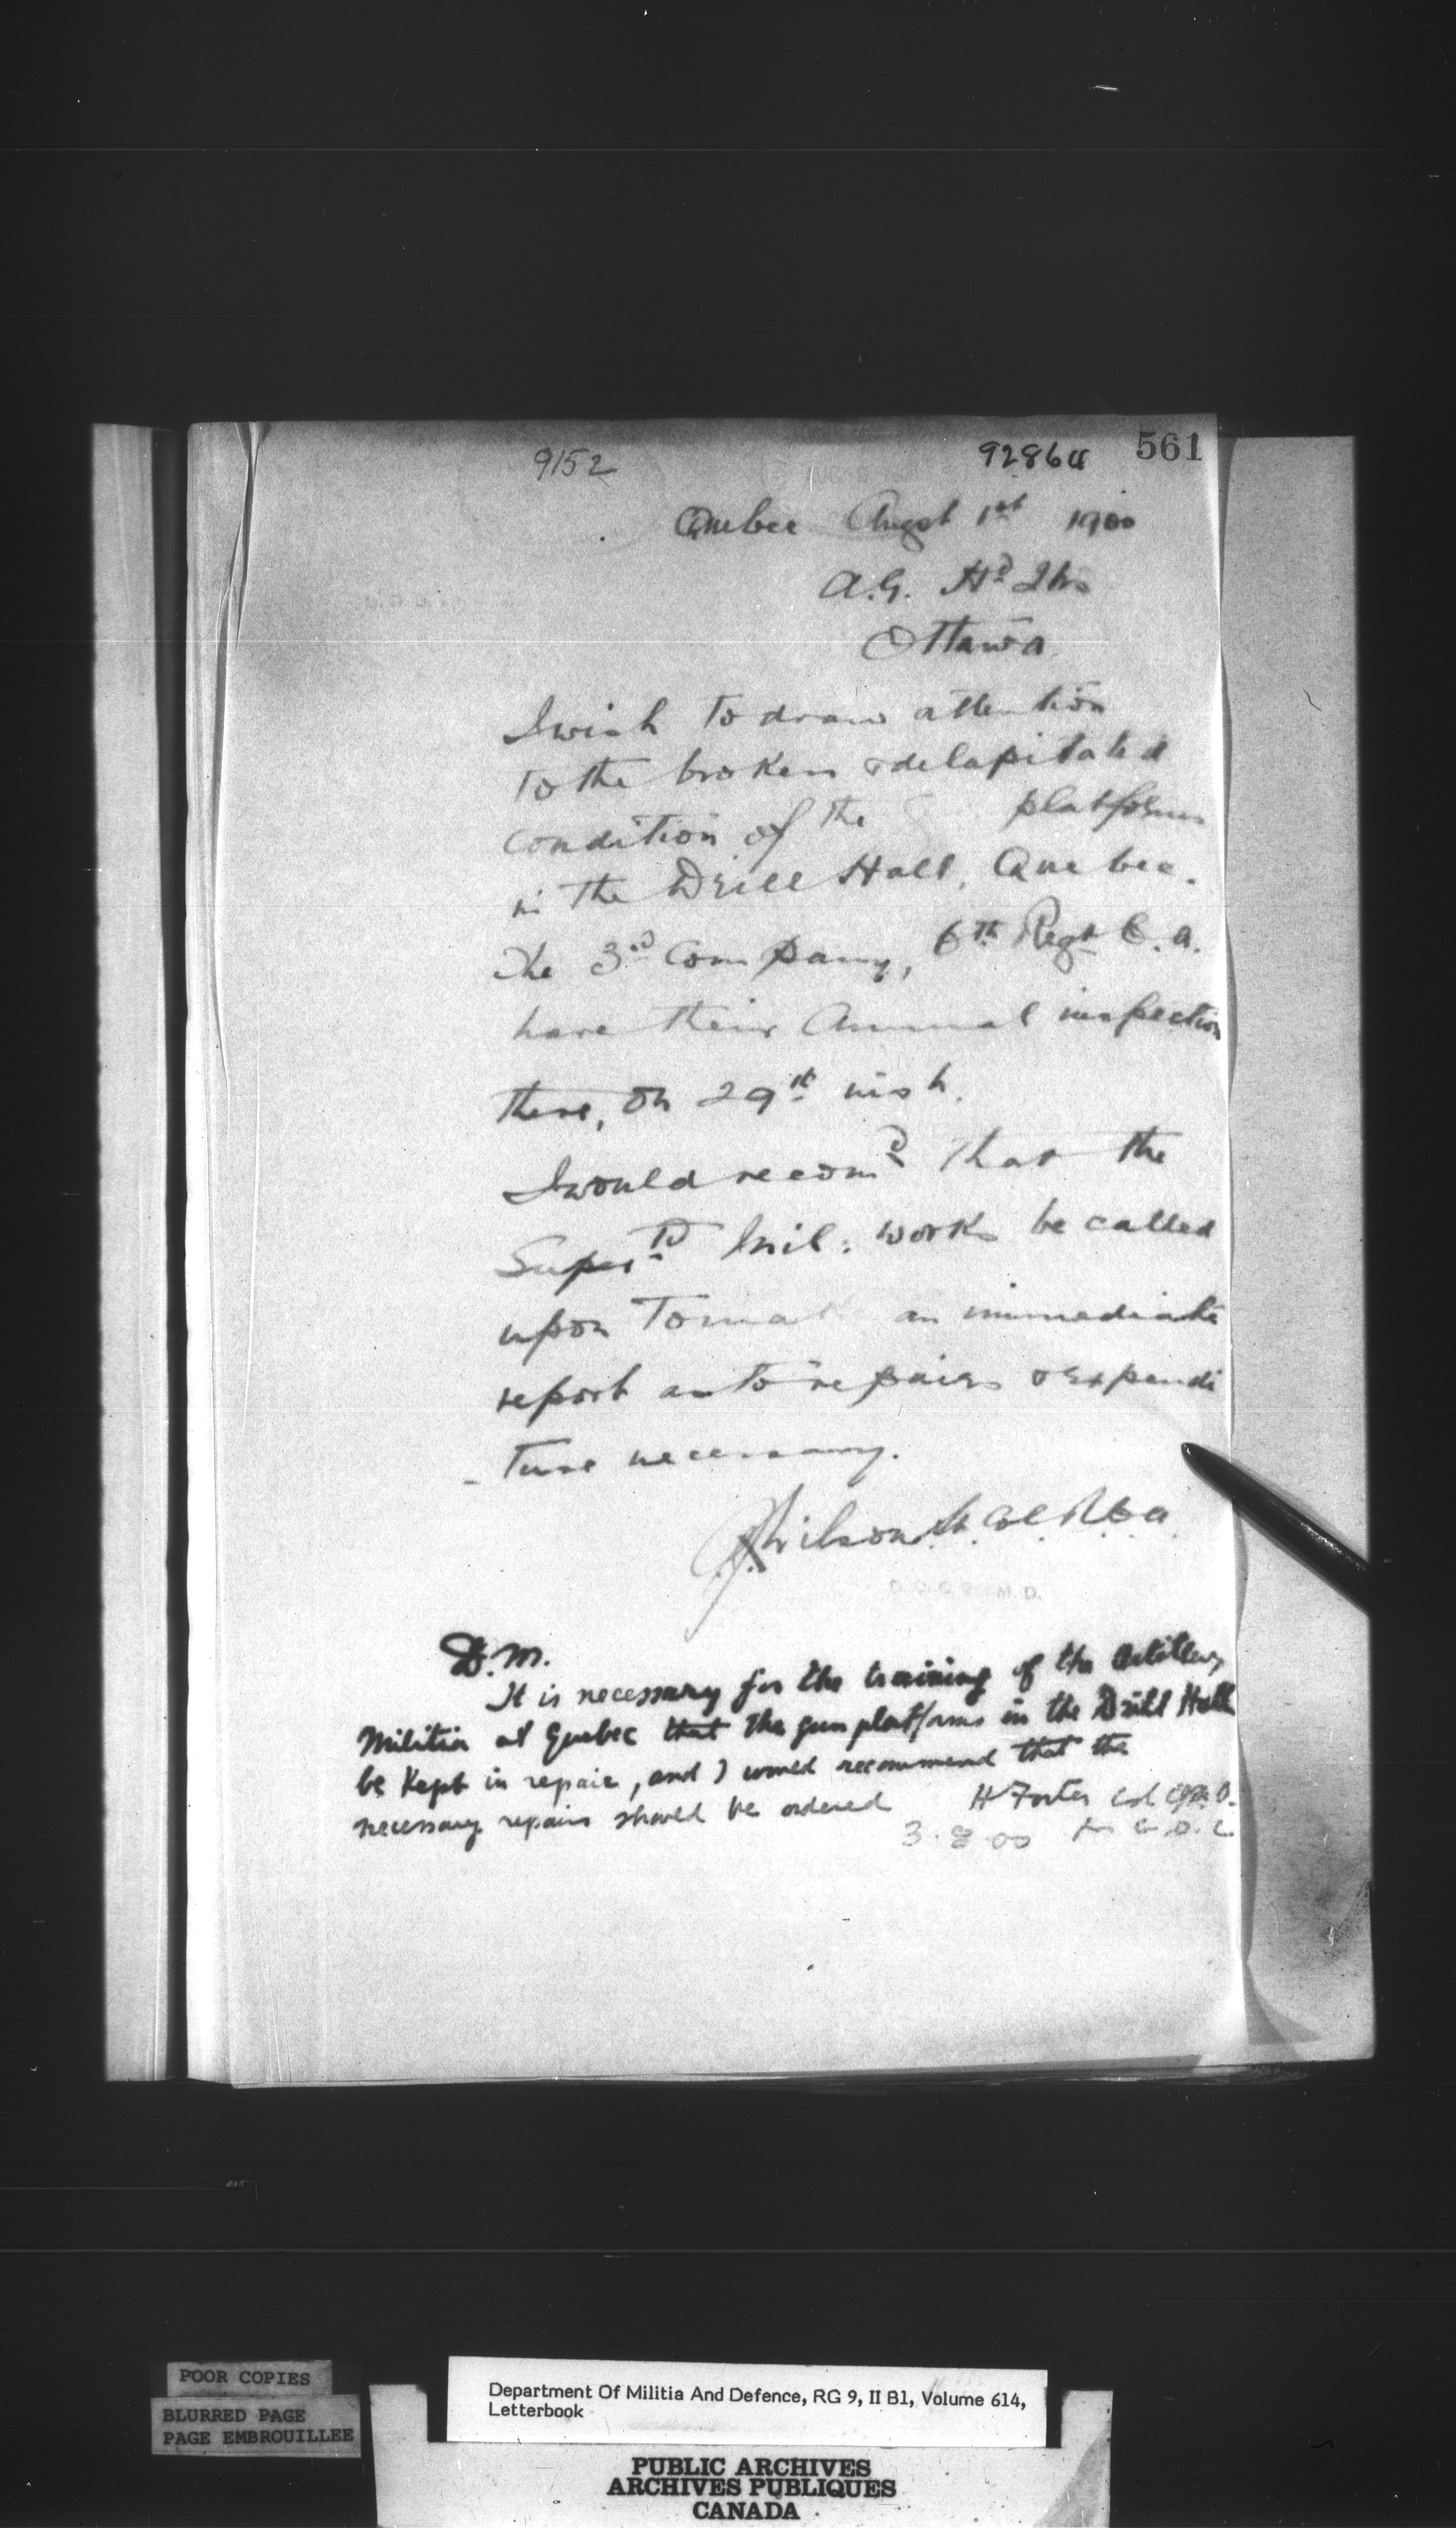 9152
92864 561
Quebec Augst 1st 1900
A.G. Hd Qrs
Ottawa
I wish to draw attention
to the broken & delapitated
condition of the platforms
in the Drill Hall, Quebec.
The 3rd Company, 6th Regt C.A.
have their Annual inspection
there, on 29th inst.
I would recomd that the
Superd Mil: works be called
upon to mak an immediate
report as to repairs & expendi
- ture necessary.
Wilson Lt. Col. RCA
D.M.
It is necessary for the training of the Artillery
Militia at Quebec that the gun platforms in the Drill Hall
be kept in repair, and I would recommend that the
necessary repairs should be ordered H Foster Col
3.8.00 for G.O.C.
POOR COPIES
BLURRED PAGE
PAGE EMBROUILLEE
Department Of Militia And Defence, RG 9, II B1, Volume 614,
Letterbook
PUBLIC ARCHIVES
ARCHIVES PUBLIQUES
CANADA